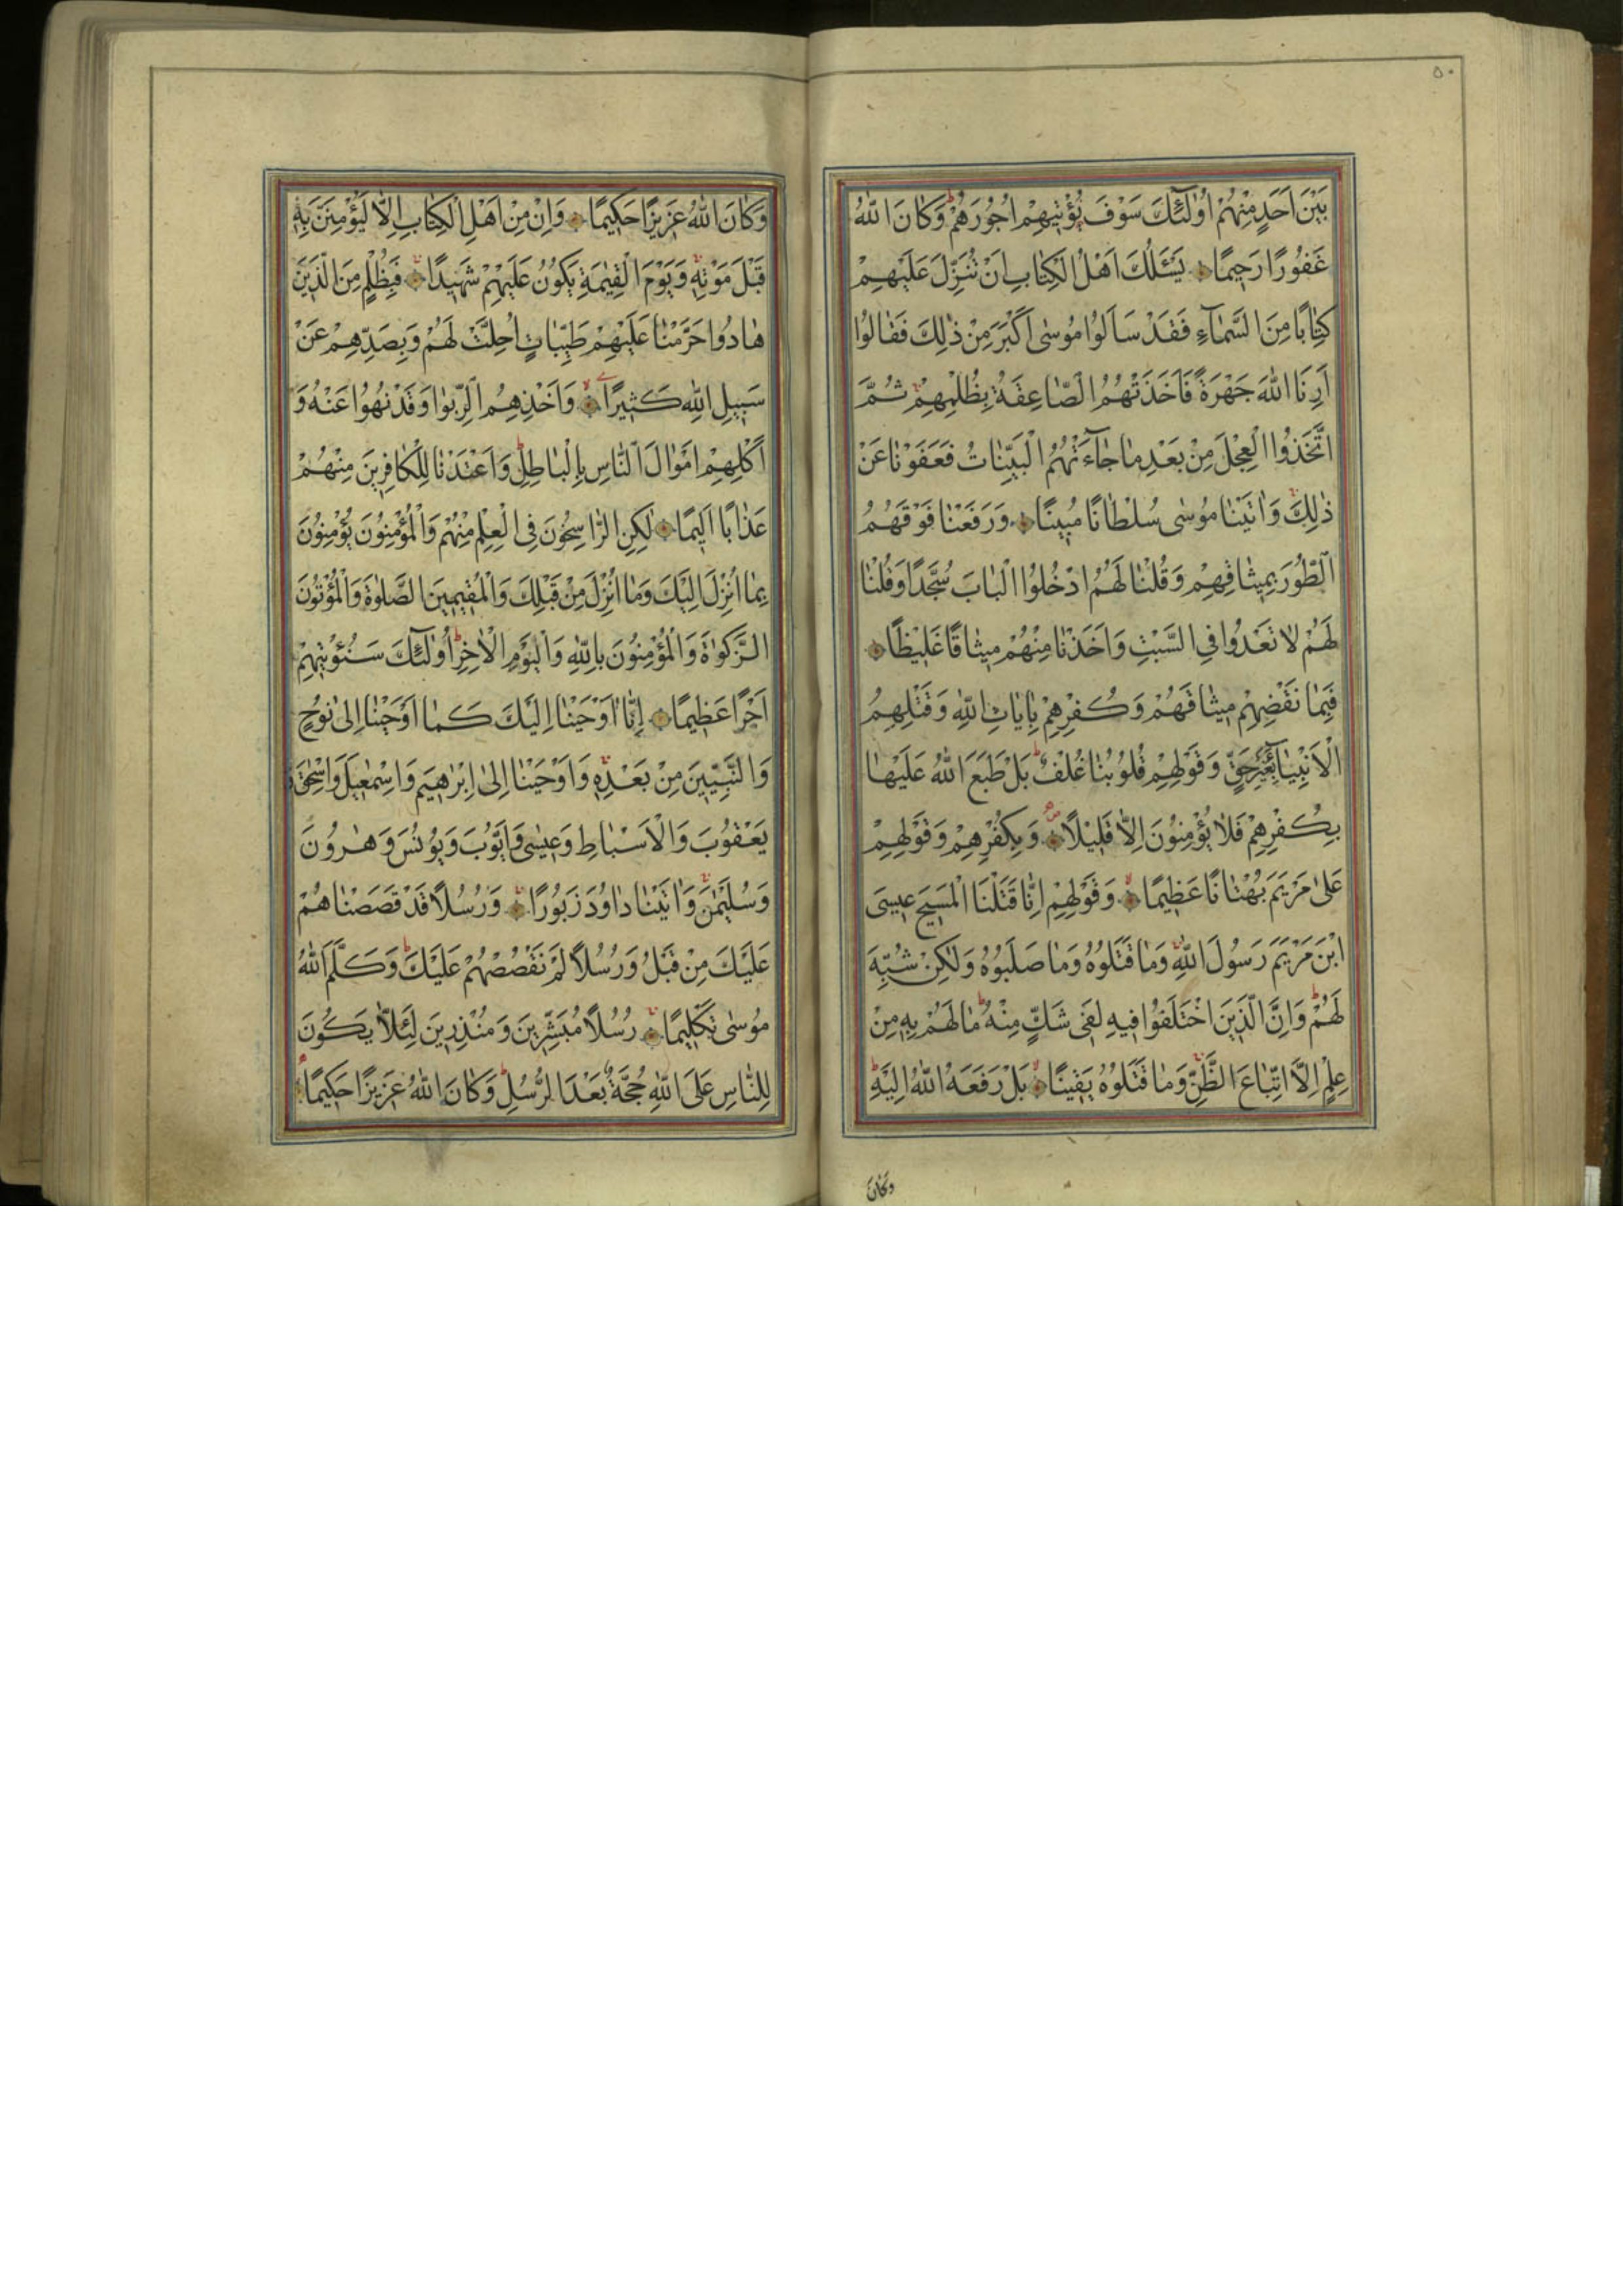 ٥٠
بَيْنَ اَحَدٍ مِنْهُمْ اُولٰٓئِكَ سَوْفَ يُؤْتٖيهِمْ اُجُورَهُمْ وَكَانَ اللّٰهُ
غَفُورًا رَحٖيمًا يَسْئَلُكَ اَهْلُ الْكِتَابِ اَنْ تُنَزِّلَ عَلَيْهِمْ
كِتَابًا مِنَ السَّمَآءِ فَقَدْ سَاَلُوا مُوسٰى اَكْبَرَ مِنْ ذٰلِكَ فَقَالُوا
اَرِنَا اللّٰهَ جَهْرَةً فَاَخَذَتْهُمُ الصَّاعِقَةُ بِظُلْمِهِمْ ثُمَّ
اتَّخَذُوا الْعِجْلَ مِنْ بَعْدِ مَا جَآءَتْهُمُ الْبَيِّنَاتُ فَعَفَوْنَا عَنْ
ذٰلِكَ وَاٰتَيْنَا مُوسٰى سُلْطَانًا مُبٖينًا وَرَفَعْنَا فَوْقَهُمُ
الطُّورَ بِمٖيثَاقِهِمْ وَقُلْنَا لَهُمُ ادْخُلُوا الْبَابَ سُجَّدًا وَقُلْنَا
لَهُمْ لَا تَعْدُوا فِي السَّبْتِ وَاَخَذْنَا مِنْهُمْ مٖيثَاقًا غَلٖيظًا
فَبِمَا نَقْضِهِمْ مٖيثَاقَهُمْ وَكُفْرِهِمْ بِاٰيَاتِ اللّٰهِ وَقَتْلِهِمُ
الْاَنْبِيَآءَ بِغَيْرِ حَقٍّ وَقَوْلِهِمْ قُلُوبُنَا غُلْفٌ بَلْ طَبَعَ اللّٰهُ عَلَيْهَا
بِكُفْرِهِمْ فَلَا يُؤْمِنُونَ اِلَّا قَلٖيلًا وَبِكُفْرِهِمْ وَقَوْلِهِمْ
عَلٰى مَرْيَمَ بُهْتَانًا عَظٖيمًا وَقَوْلِهِمْ اِنَّا قَتَلْنَا الْمَسٖيحَ عٖيسَى
ابْنَ مَرْيَمَ رَسُولَ اللّٰهِ وَمَا قَتَلُوهُ وَمَا صَلَبُوهُ وَلٰكِنْ شُبِّهَ
لَهُمْ وَاِنَّ الَّذٖينَ اخْتَلَفُوا فٖيهِ لَفٖى شَكٍّ مِنْهُ مَا لَهُمْ بِهٖ مِنْ
عِلْمٍ اِلَّا اتِّبَاعَ الظَّنِّ وَمَا قَتَلُوهُ يَقٖينًا بَلْ رَفَعَهُ اللّٰهُ اِلَيْهِ
وَكَانَ
وَكَانَ اللّٰهُ عَزٖيزًا حَكٖيمًا وَاِنْ مِنْ اَهْلِ الْكِتَابِ اِلَّا لَيُؤْمِنَنَّ بِهٖ
قَبْلَ مَوْتِهٖ وَيَوْمَ الْقِيٰمَةِ يَكُونُ عَلَيْهِمْ شَهٖيدًا فَبِظُلْمٍ مِنَ الَّذٖينَ
هَادُوا حَرَّمْنَا عَلَيْهِمْ طَيِّبَاتٍ اُحِلَّتْ لَهُمْ وَبِصَدِّهِمْ عَنْ
سَبٖيلِ اللّٰهِ كَثٖيرًا وَاَخْذِهِمُ الرِّبٰوا وَقَدْ نُهُوا عَنْهُ وَ
اَكْلِهِمْ اَمْوَالَ النَّاسِ بِالْبَاطِلِ وَاَعْتَدْنَا لِلْكَافِرٖينَ مِنْهُمْ
عَذَابًا اَلٖيمًا لٰكِنِ الرَّاسِخُونَ فِي الْعِلْمِ مِنْهُمْ وَالْمُؤْمِنُونَ يُؤْمِنُونَ
بِمَا اُنْزِلَ اِلَيْكَ وَمَا اُنْزِلَ مِنْ قَبْلِكَ وَالْمُقٖيمٖينَ الصَّلٰوةَ وَالْمُؤْتُونَ
الزَّكٰوةَ وَالْمُؤْمِنُونَ بِاللّٰهِ وَالْيَوْمِ الْاٰخِرِ اُولٰٓئِكَ سَنُؤْتٖيهِمْ
اَجْرًا عَظٖيمًا اِنَّا اَوْحَيْنَا اِلَيْكَ كَمَا اَوْحَيْنَا اِلٰى نُوحٍ
وَالنَّبِيّٖينَ مِنْ بَعْدِهٖ وَاَوْحَيْنَا اِلٰى اِبْرٰهٖيمَ وَاِسْمٰعٖيلَ وَاِسْحٰقَ وَ
يَعْقُوبَ وَالْاَسْبَاطِ وَعٖيسٰى وَاَيُّوبَ وَيُونُسَ وَهٰرُونَ
وَسُلَيْمٰنَ وَاٰتَيْنَا دَاوُدَ زَبُورًا وَرُسُلًا قَدْ قَصَصْنَاهُمْ
عَلَيْكَ مِنْ قَبْلُ وَرُسُلًا لَمْ نَقْصُصْهُمْ عَلَيْكَ وَكَلَّمَ اللّٰهُ
مُوسٰى تَكْلٖيمًا رُسُلًا مُبَشِّرٖينَ وَمُنْذِرٖينَ لِئَلَّا يَكُونَ
لِلنَّاسِ عَلَى اللّٰهِ حُجَّةٌ بَعْدَ الرُّسُلِ وَكَانَ اللّٰهُ عَزٖيزًا حَكٖيمًا